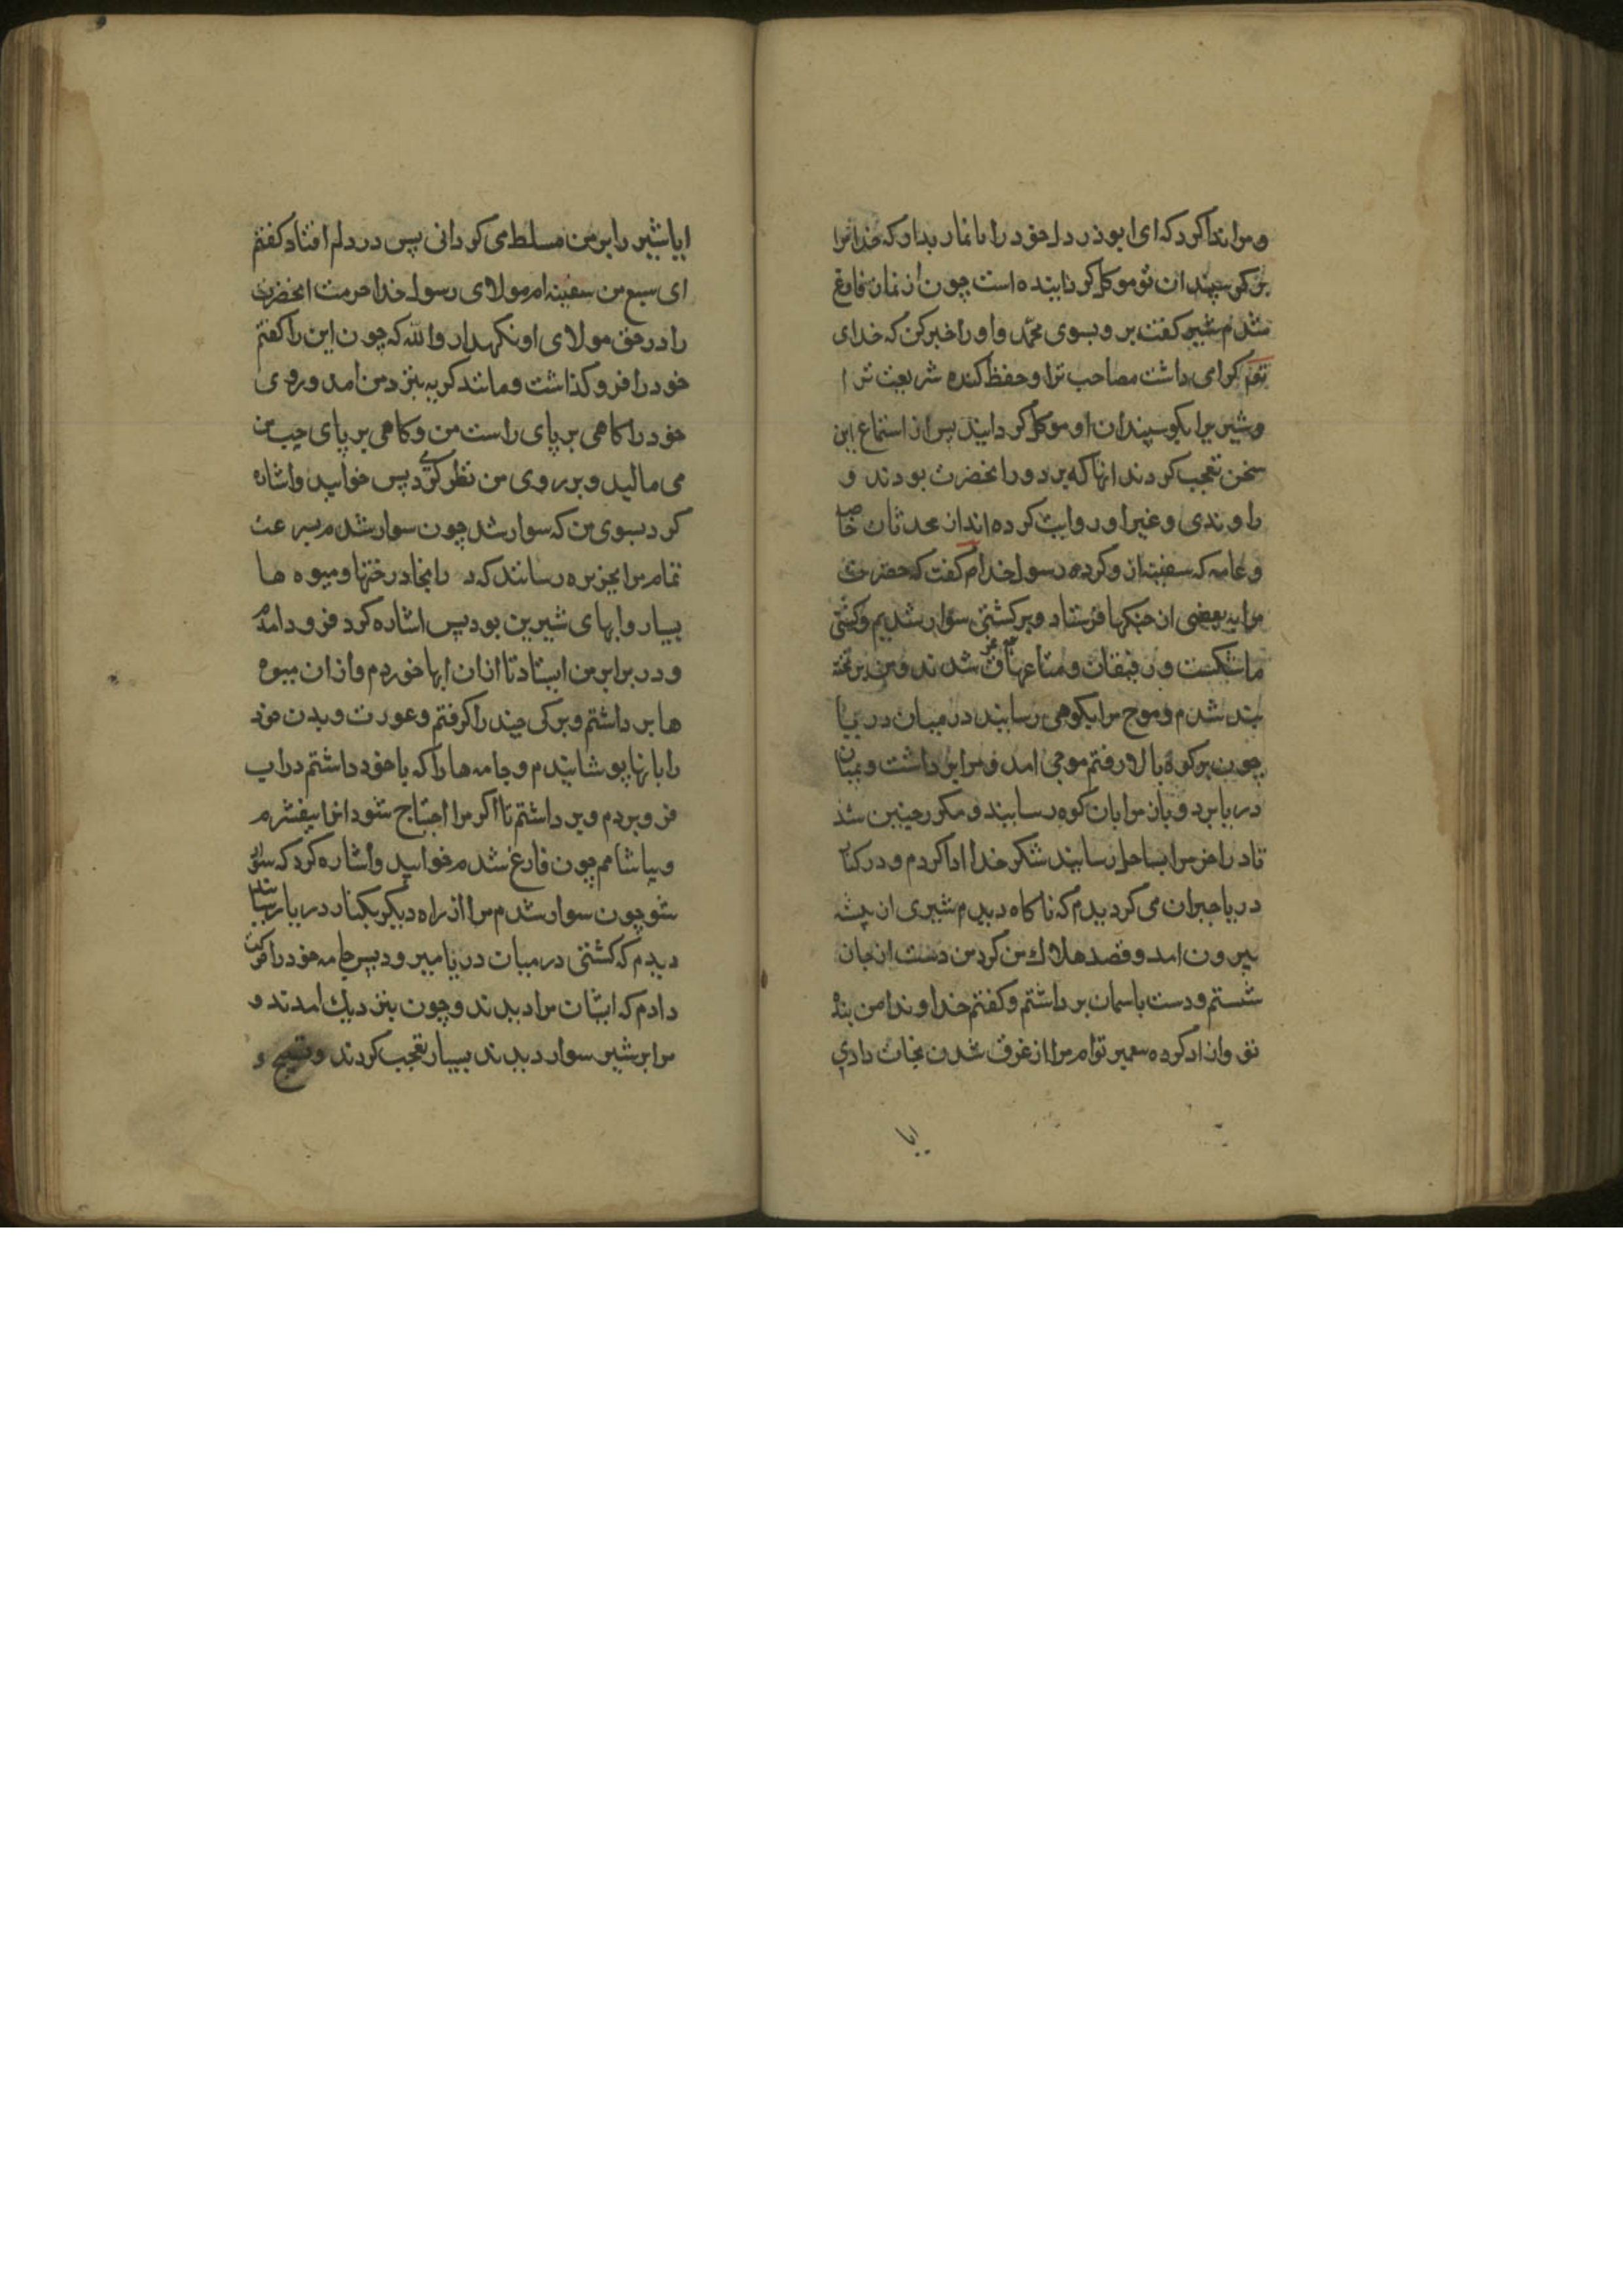 و مرا ندا کرد که ای ابوذر دل خود را با نماز بدار که خدا مرا
بر گوسپندان تو موکل گردانیده است چون از نماز فارغ
شدم شیر گفت برو بسوی محمد و او را خبر کن که خدای
تو گرامی داشت مصاحب ترا و حفظ کننده شریعت ترا
و شیریرا بگوسپندان او موکل گردانید پس از استماع این
سخن تعجب کردند انها که بر دور انحضرت بودند و
راوندی و غیر او روایت کرده اند از محدثان خاصه
و عامه که سفینه ازاد کرده رسول خدا گفت که حضرت
مرا به بعضی از جنگها فرستاد و بر کشتی سوار شدیم و کشتی
ما شکست و رفیقان و متاعها غرق شدند و من بر تخته
بند شدم و موج مرا بکوهی رسانید در میان دریا
چون بر کوه بالا رفتم موجی امد و مرا برداشت و بمیان
دریا برد و باز مرا بان کوه رسانید و مکرر چنین شد
تا در اخر مرا بساحل رسانید شکر خدا ادا کردم و در کنار
دریا حیران می گردیدم که ناگاه دیدم شیری از بیشه
بیرون امد و قصد هلاک من کرد من دست از جان
شستم و دست باسمان برداشتم و گفتم خداوندا من بنده
تو و ازاد کرده پیغمبر توام مرا از غرق شدن نجات دادی
ایا
ایا شیر را بر من مسلط می گردانی پس در دلم افتاد که گفتم
ای سبع من سفینه ام مولای رسول خدا حرمت انحضرت
را در حق مولای او نگهدار والله که چون این را گفتم
خود را فرو گذاشت و مانند گربه بنزد من امد و روی
خود را گاهی بر پای راست من و گاهی بر پای چپ من
می مالید و بر روی من نظر کردی پس خوابید و اشاره
کرد بسوی من که سوار شو چون سوار شدم بسرعت
تمام مرا بجزیره رسانید که در انجا درختها و میوه ها
بسیار و ابهای شیرین بود پس اشاره کرد فرود امدم
و در برابر من ایستاد تا از ان ابها خوردم و از ان میوه
ها برداشتم و برگی چند را گرفتم و عورت و بدن خود
را بانها پوشانیدم و جامه ها را که با خود داشتم در اب
فرو بردم و برداشتم تا اگر مرا احتیاج شود انرا بیفشرم
و بیاشامم چون فارغ شدم خوابید و اشاره کرد که سوار
شو چون سوار شدم مرا از راه دیگر بکنار دریا رسانید
دیدم که کشتی در میان دریا میرود پس جامه خود را حرکت
دادم که ایشان مرا دیدند و چون بنزدیک امدند و
مرا بر شیر سوار دیدند بسیار تعجب کردند و تسبیح و